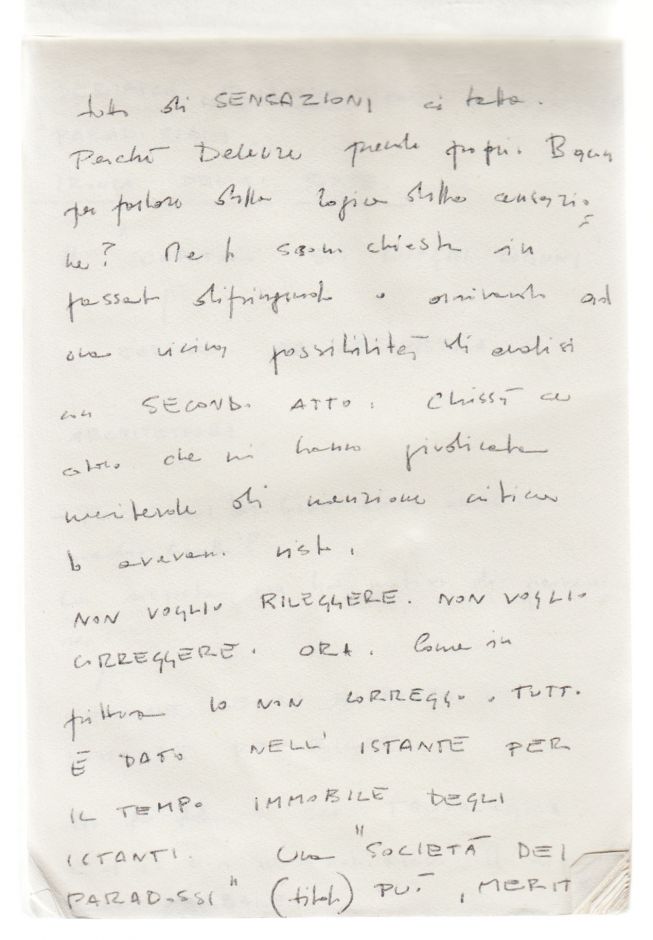 tutto di SENSAZIONI si tratta.
Perché Deleuze prende proprio Bacon
per parlare della logica della sensazio
ne? Me lo sono chiesto in
passato dipingendo e arrivando ad
una vicina possibilità di analisi
un SECONDO ATTO. Chissà se
coloro che mi hanno giudicato
meritevole di menzione critica
lo avevano visto.
NON VOGLIO RILEGGERE. NON VOGLIO
CORREGGERE. ORA. Come in
pittura IO NON CORREGGO. TUTTO
È DATO NELL' ISTANTE PER
IL TEMPO IMMOBILE DEGLI
ISTANTI. Una "SOCIETÀ DEI
PARADOSSI" (titolo) PUÒ, MERIT